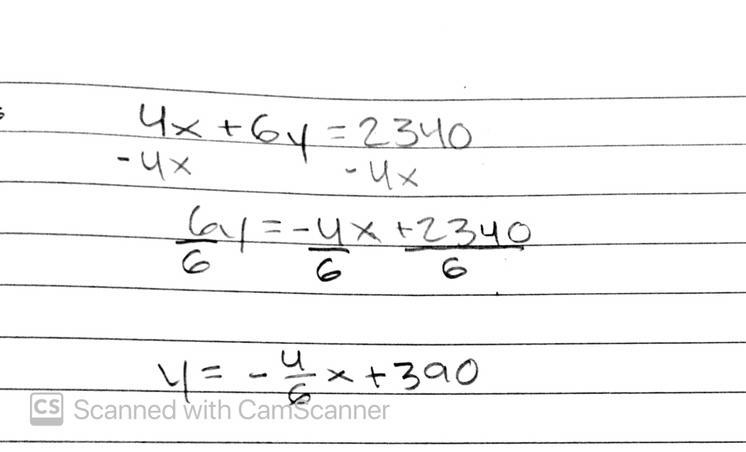 4x + 6y = 2340
-4x -4x
6y/6 = -4x/6 + 2340/6
y = - 4/6 x + 390
CS Scanned with CamScanner